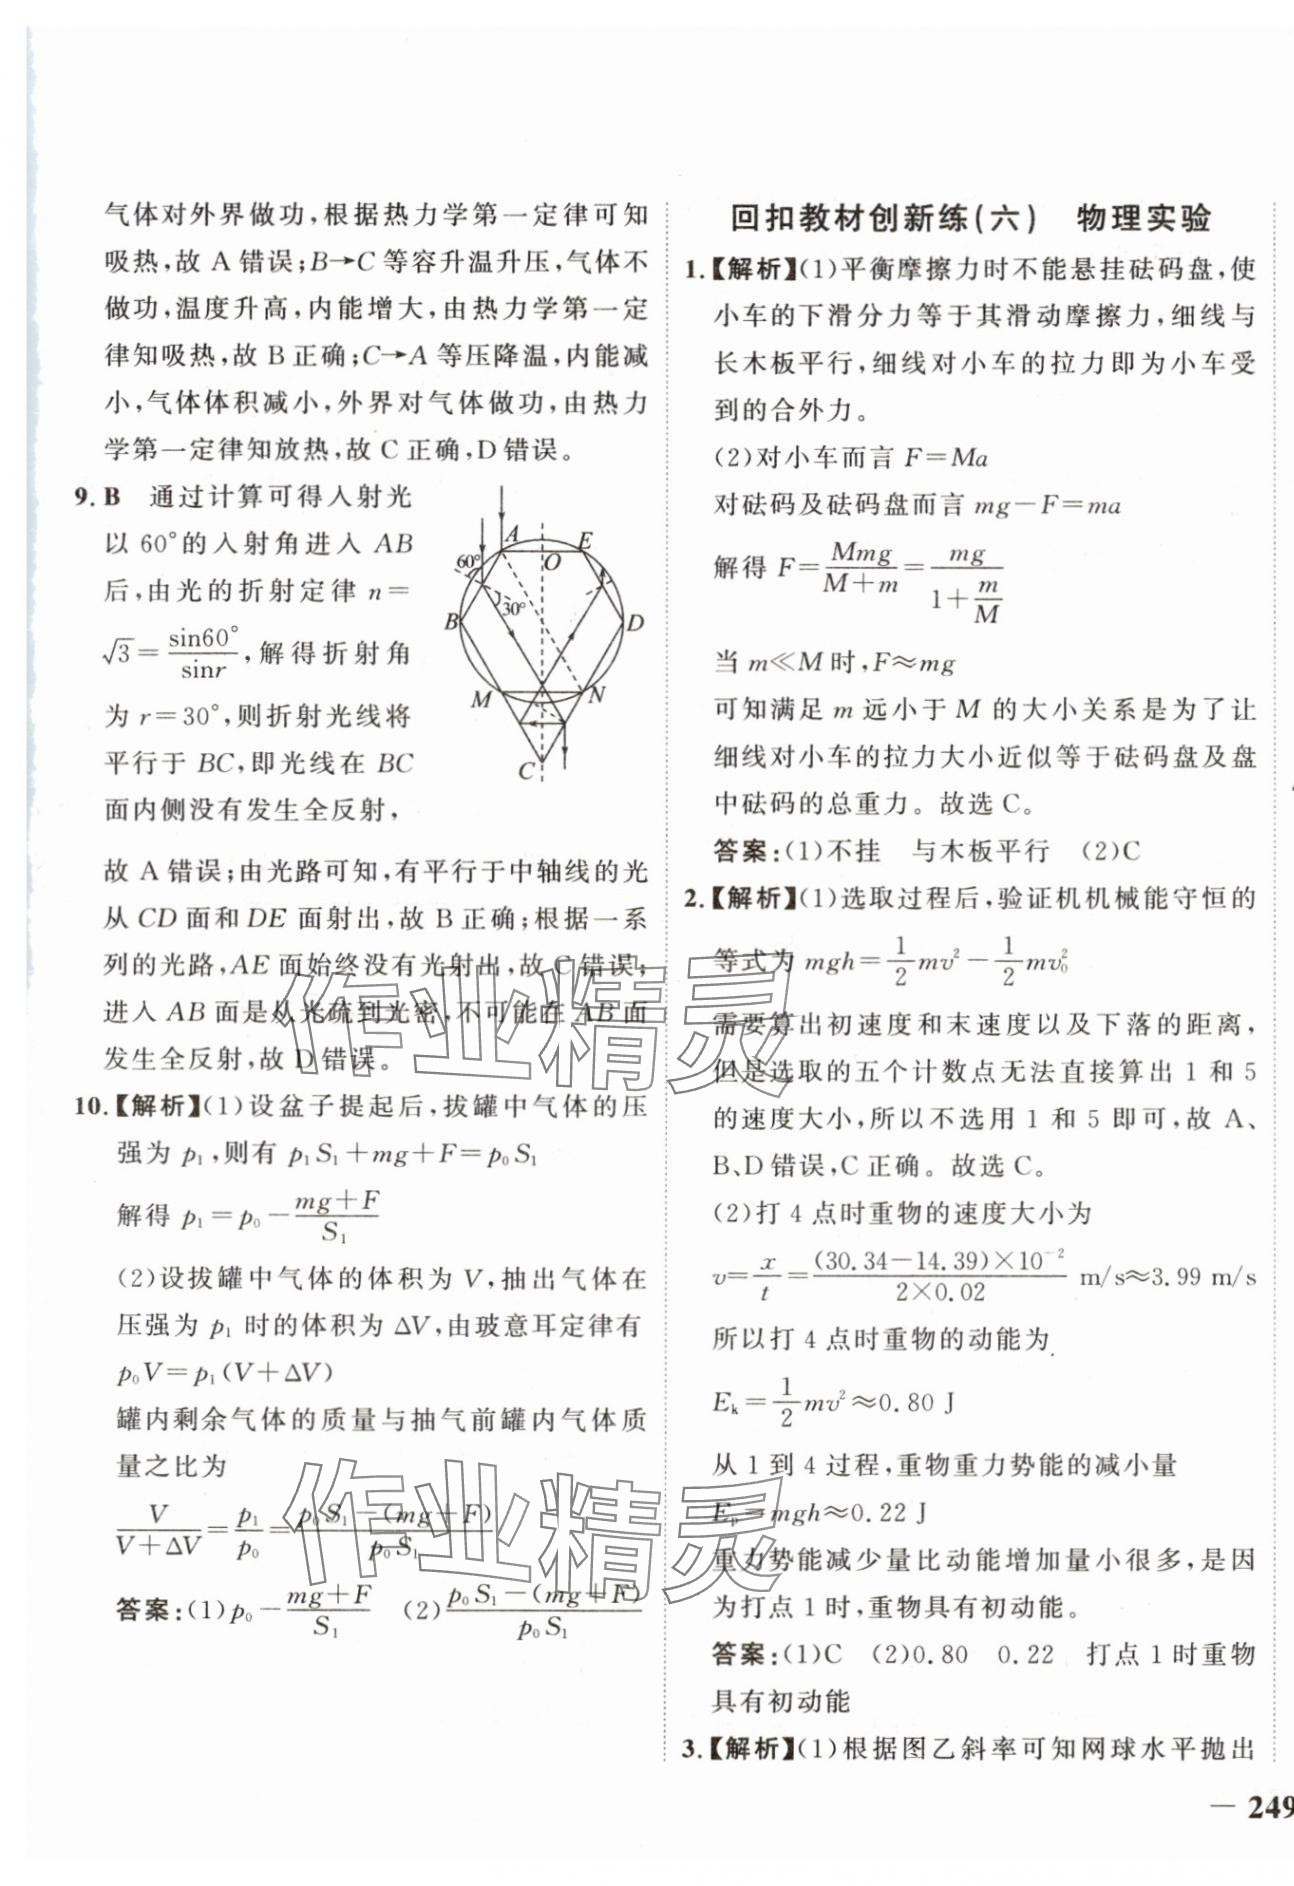 气体对外界做功,根据热力学第一定律可知
吸热,故 A 错误;B→C 等容升温升压,气体不
做功,温度升高,内能增大,由热力学第一定
律知吸热,故 B 正确;C→A 等压降温,内能减
小,气体体积减小,外界对气体做功,由热力
学第一定律知放热,故 C 正确,D 错误。
9. B 通过计算可得入射光
以 60°的入射角进入 AB
后,由光的折射定律 n=
√3=sin60°/sinr,解得折射角
为 r=30°,则折射光线将
平行于 BC,即光线在 BC
面内侧没有发生全反射,
A E
60° O
30°
B D
M N
C
故 A 错误;由光路可知,有平行于中轴线的光
从 CD 面和 DE 面射出,故 B 正确;根据一系
列的光路,AE 面始终没有光射出,故 C 错误;
进入 AB 面是从光疏到光密,不可能在 AB 面
发生全反射,故 D 错误。
10.【解析】(1)设盆子提起后,拔罐中气体的压
强为 p₁,则有 p₁S₁+mg+F=p₀S₁
解得 p₁=p₀-(mg+F)/S₁
(2)设拔罐中气体的体积为 V,抽出气体在
压强为 p₁ 时的体积为 ΔV,由玻意耳定律有
p₀V=p₁(V+ΔV)
罐内剩余气体的质量与抽气前罐内气体质
量之比为
V/(V+ΔV)=p₁/p₀=(p₀S₁-(mg+F))/(p₀S₁)
答案:(1)p₀-(mg+F)/S₁ (2)(p₀S₁-(mg+F))/(p₀S₁)
回扣教材创新练(六) 物理实验
1.【解析】(1)平衡摩擦力时不能悬挂砝码盘,使
小车的下滑分力等于其滑动摩擦力,细线与
长木板平行,细线对小车的拉力即为小车受
到的合外力。
(2)对小车而言 F=Ma
对砝码及砝码盘而言 mg-F=ma
解得 F=Mmg/(M+m)=mg/(1+m/M)
当 m≪M 时,F≈mg
可知满足 m 远小于 M 的大小关系是为了让
细线对小车的拉力大小近似等于砝码盘及盘
中砝码的总重力。故选 C。
答案:(1)不挂 与木板平行 (2)C
2.【解析】(1)选取过程后,验证机机械能守恒的
等式为 mgh=1/2 mv²-1/2 mv₀²
需要算出初速度和末速度以及下落的距离,
但是选取的五个计数点无法直接算出 1 和 5
的速度大小,所以不选用 1 和 5 即可,故 A、
B、D 错误,C 正确。故选 C。
(2)打 4 点时重物的速度大小为
v=x/t=(30.34-14.39)×10⁻²/(2×0.02) m/s≈3.99 m/s
所以打 4 点时重物的动能为
Eₖ=1/2 mv²≈0.80 J
从 1 到 4 过程,重物重力势能的减小量
Eₚ=mgh≈0.22 J
重力势能减少量比动能增加量小很多,是因
为打点 1 时,重物具有初动能。
答案:(1)C (2)0.80 0.22 打点 1 时重物
具有初动能
3.【解析】(1)根据图乙斜率可知网球水平抛出
— 249
作业精灵
作业精灵